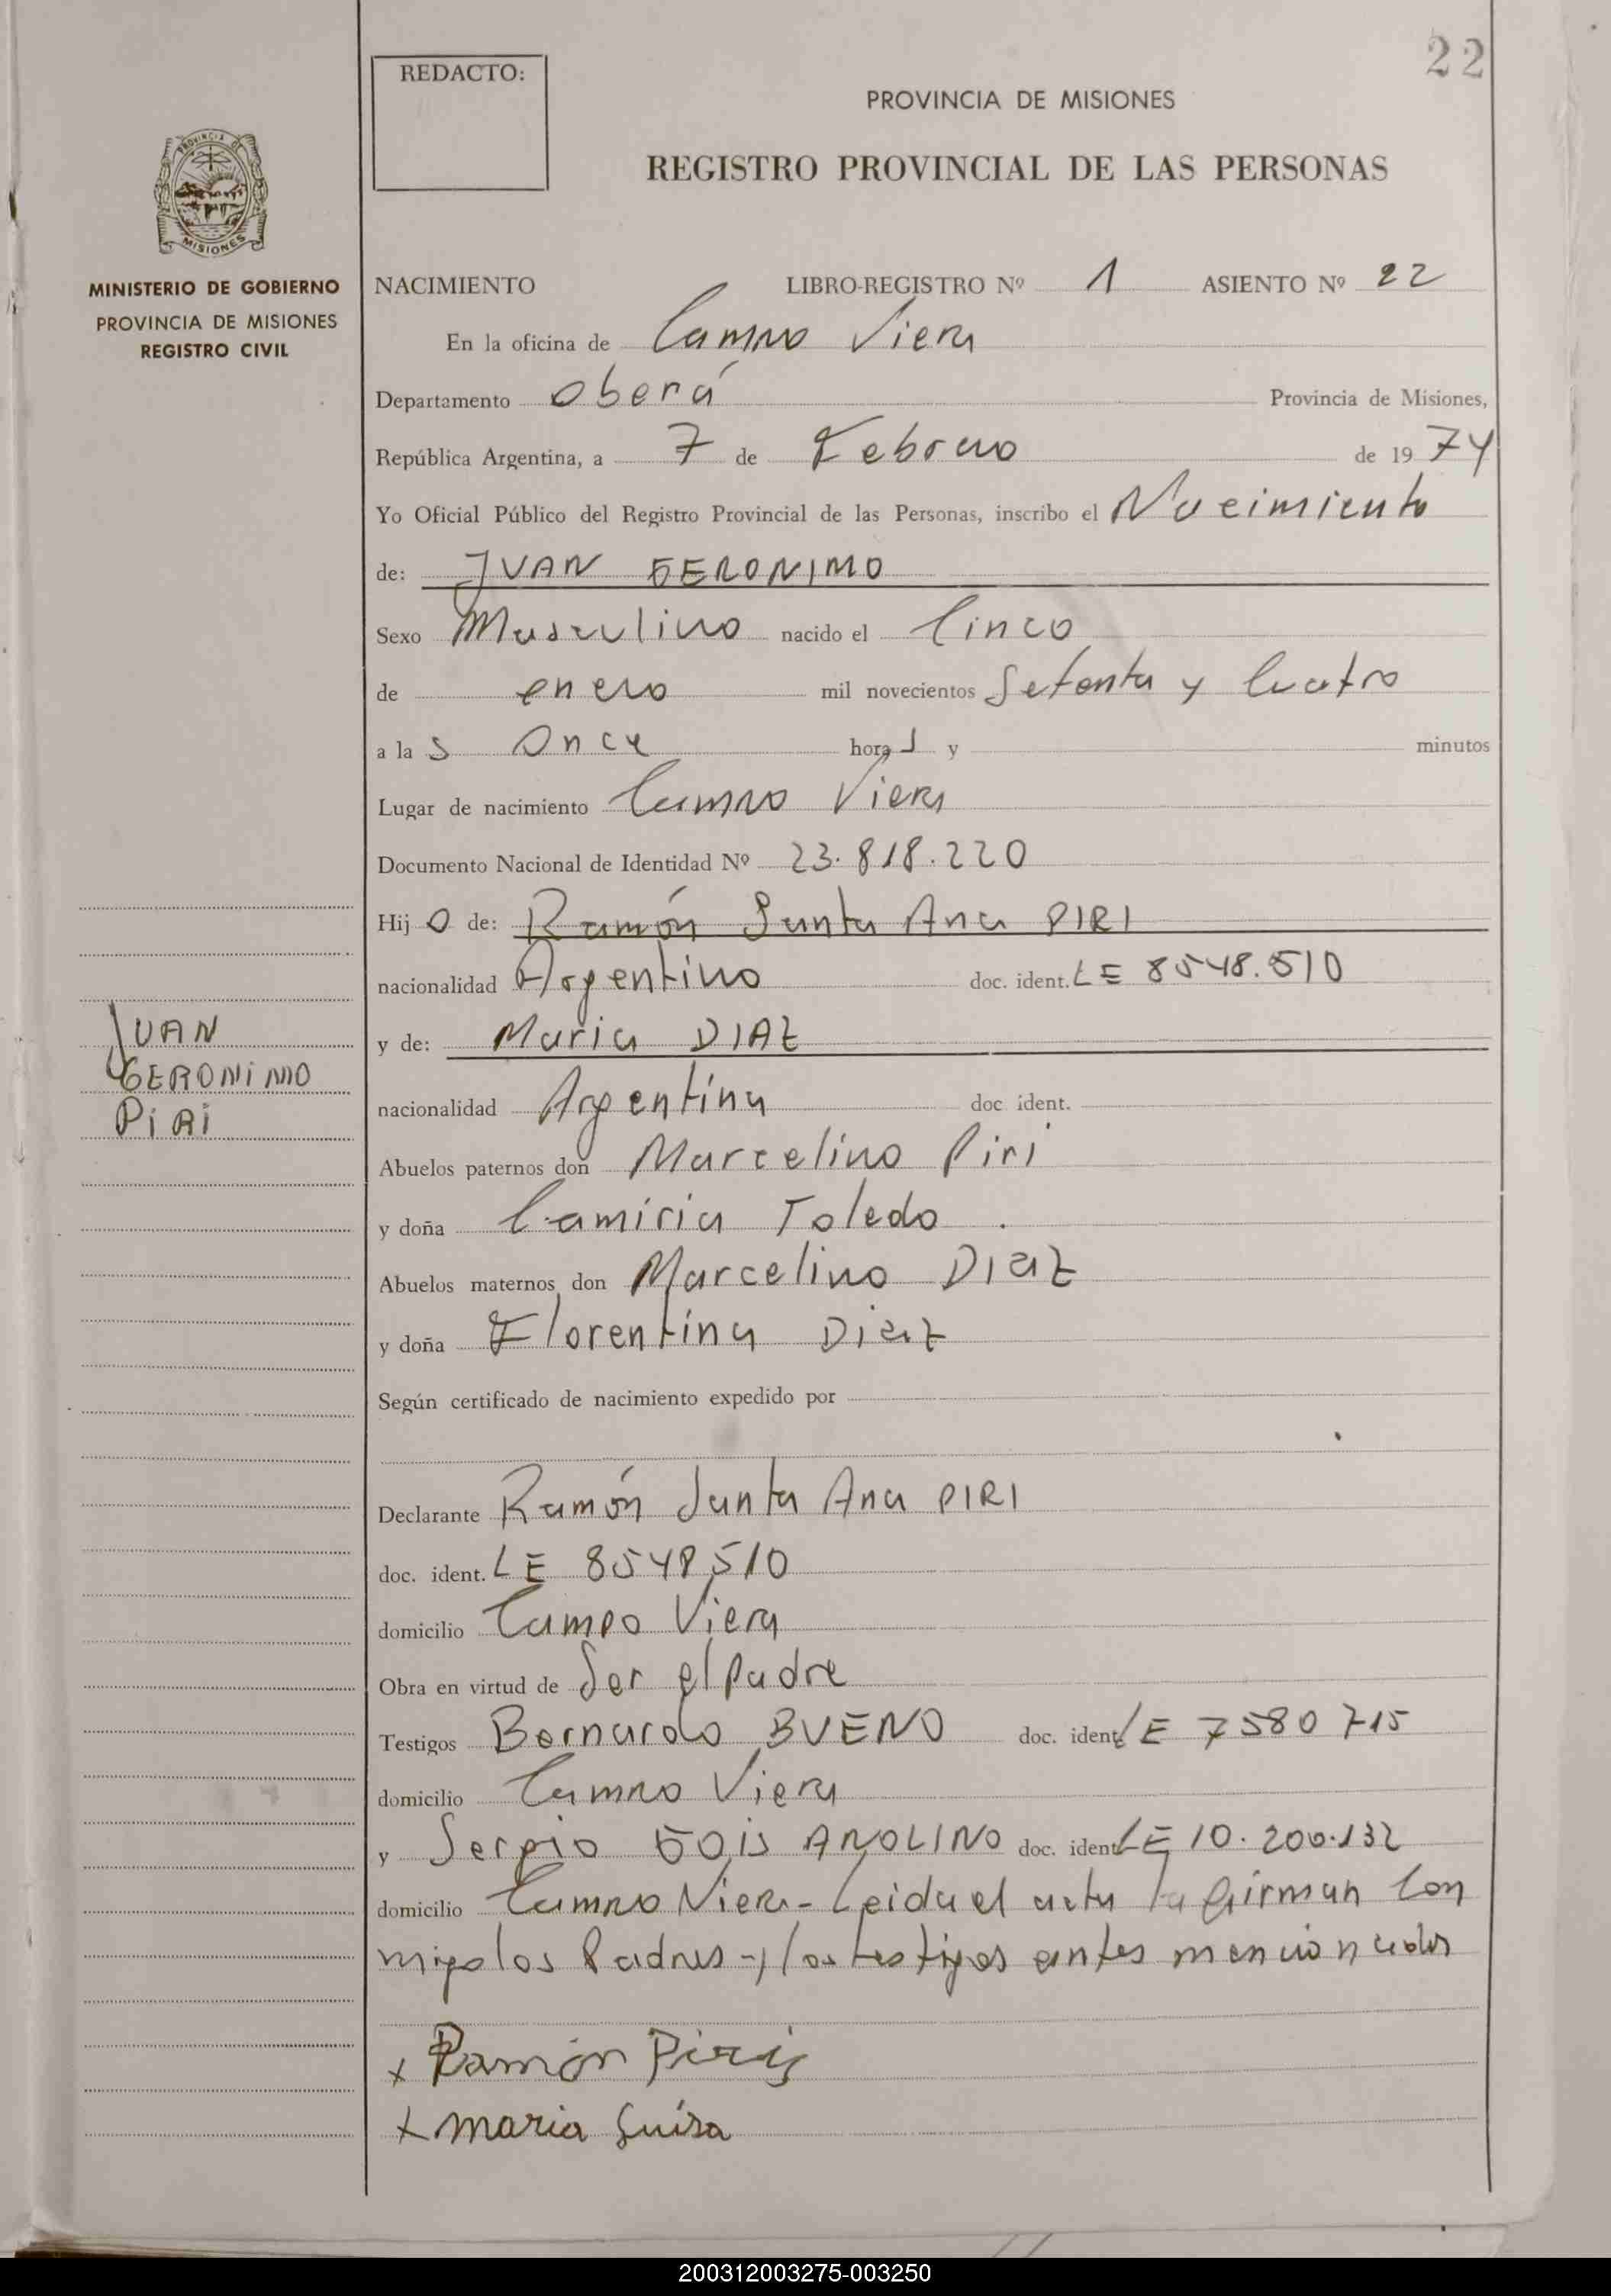 22
REDACTO:
PROVINCIA DE MISIONES
REGISTRO PROVINCIAL DE LAS PERSONAS
PROVINCIA DE
MISIONES
MINISTERIO DE GOBIERNO
PROVINCIA DE MISIONES
REGISTRO CIVIL
NACIMIENTO LIBRO-REGISTRO Nº 1 ASIENTO Nº 22
En la oficina de Campo Viera
Departamento Oberá Provincia de Misiones,
República Argentina, a 7 de Febrero de 1974
Yo Oficial Público del Registro Provincial de las Personas, inscribo el Nacimiento
de: JUAN GERONIMO
Sexo Masculino nacido el Cinco
de enero mil novecientos Setenta y Cuatro
a las Once horas y minutos
Lugar de nacimiento Campo Viera
Documento Nacional de Identidad Nº 23.818.220
Hijo de: Ramón Santa Ana PIRI
nacionalidad Argentino doc. ident. LE 8548.510
y de: Maria DIAZ
nacionalidad Argentina doc ident.
JUAN
GERONIMO
PIRI
Abuelos paternos don Marcelino Piri
y doña Toledo
Abuelos maternos don Marcelino DIaZ
y doña Florentina Diaz
Según certificado de nacimiento expedido por
Declarante Ramón Santa Ana PIRI
doc. ident. LE 8548510
domicilio Campo Viera
Obra en virtud de Ser el Padre
Testigos Bernardo BUENO doc. ident LE 7580715
domicilio Campo Viera
y Sergio GOIS APOLINO doc. ident LE 10.200.132
domicilio Campo Viera - Leida el acta la firman Con
migo los Padres y los testigos antes mencionados
x Ramón Piris
x maria Luisa
200312003275-003250